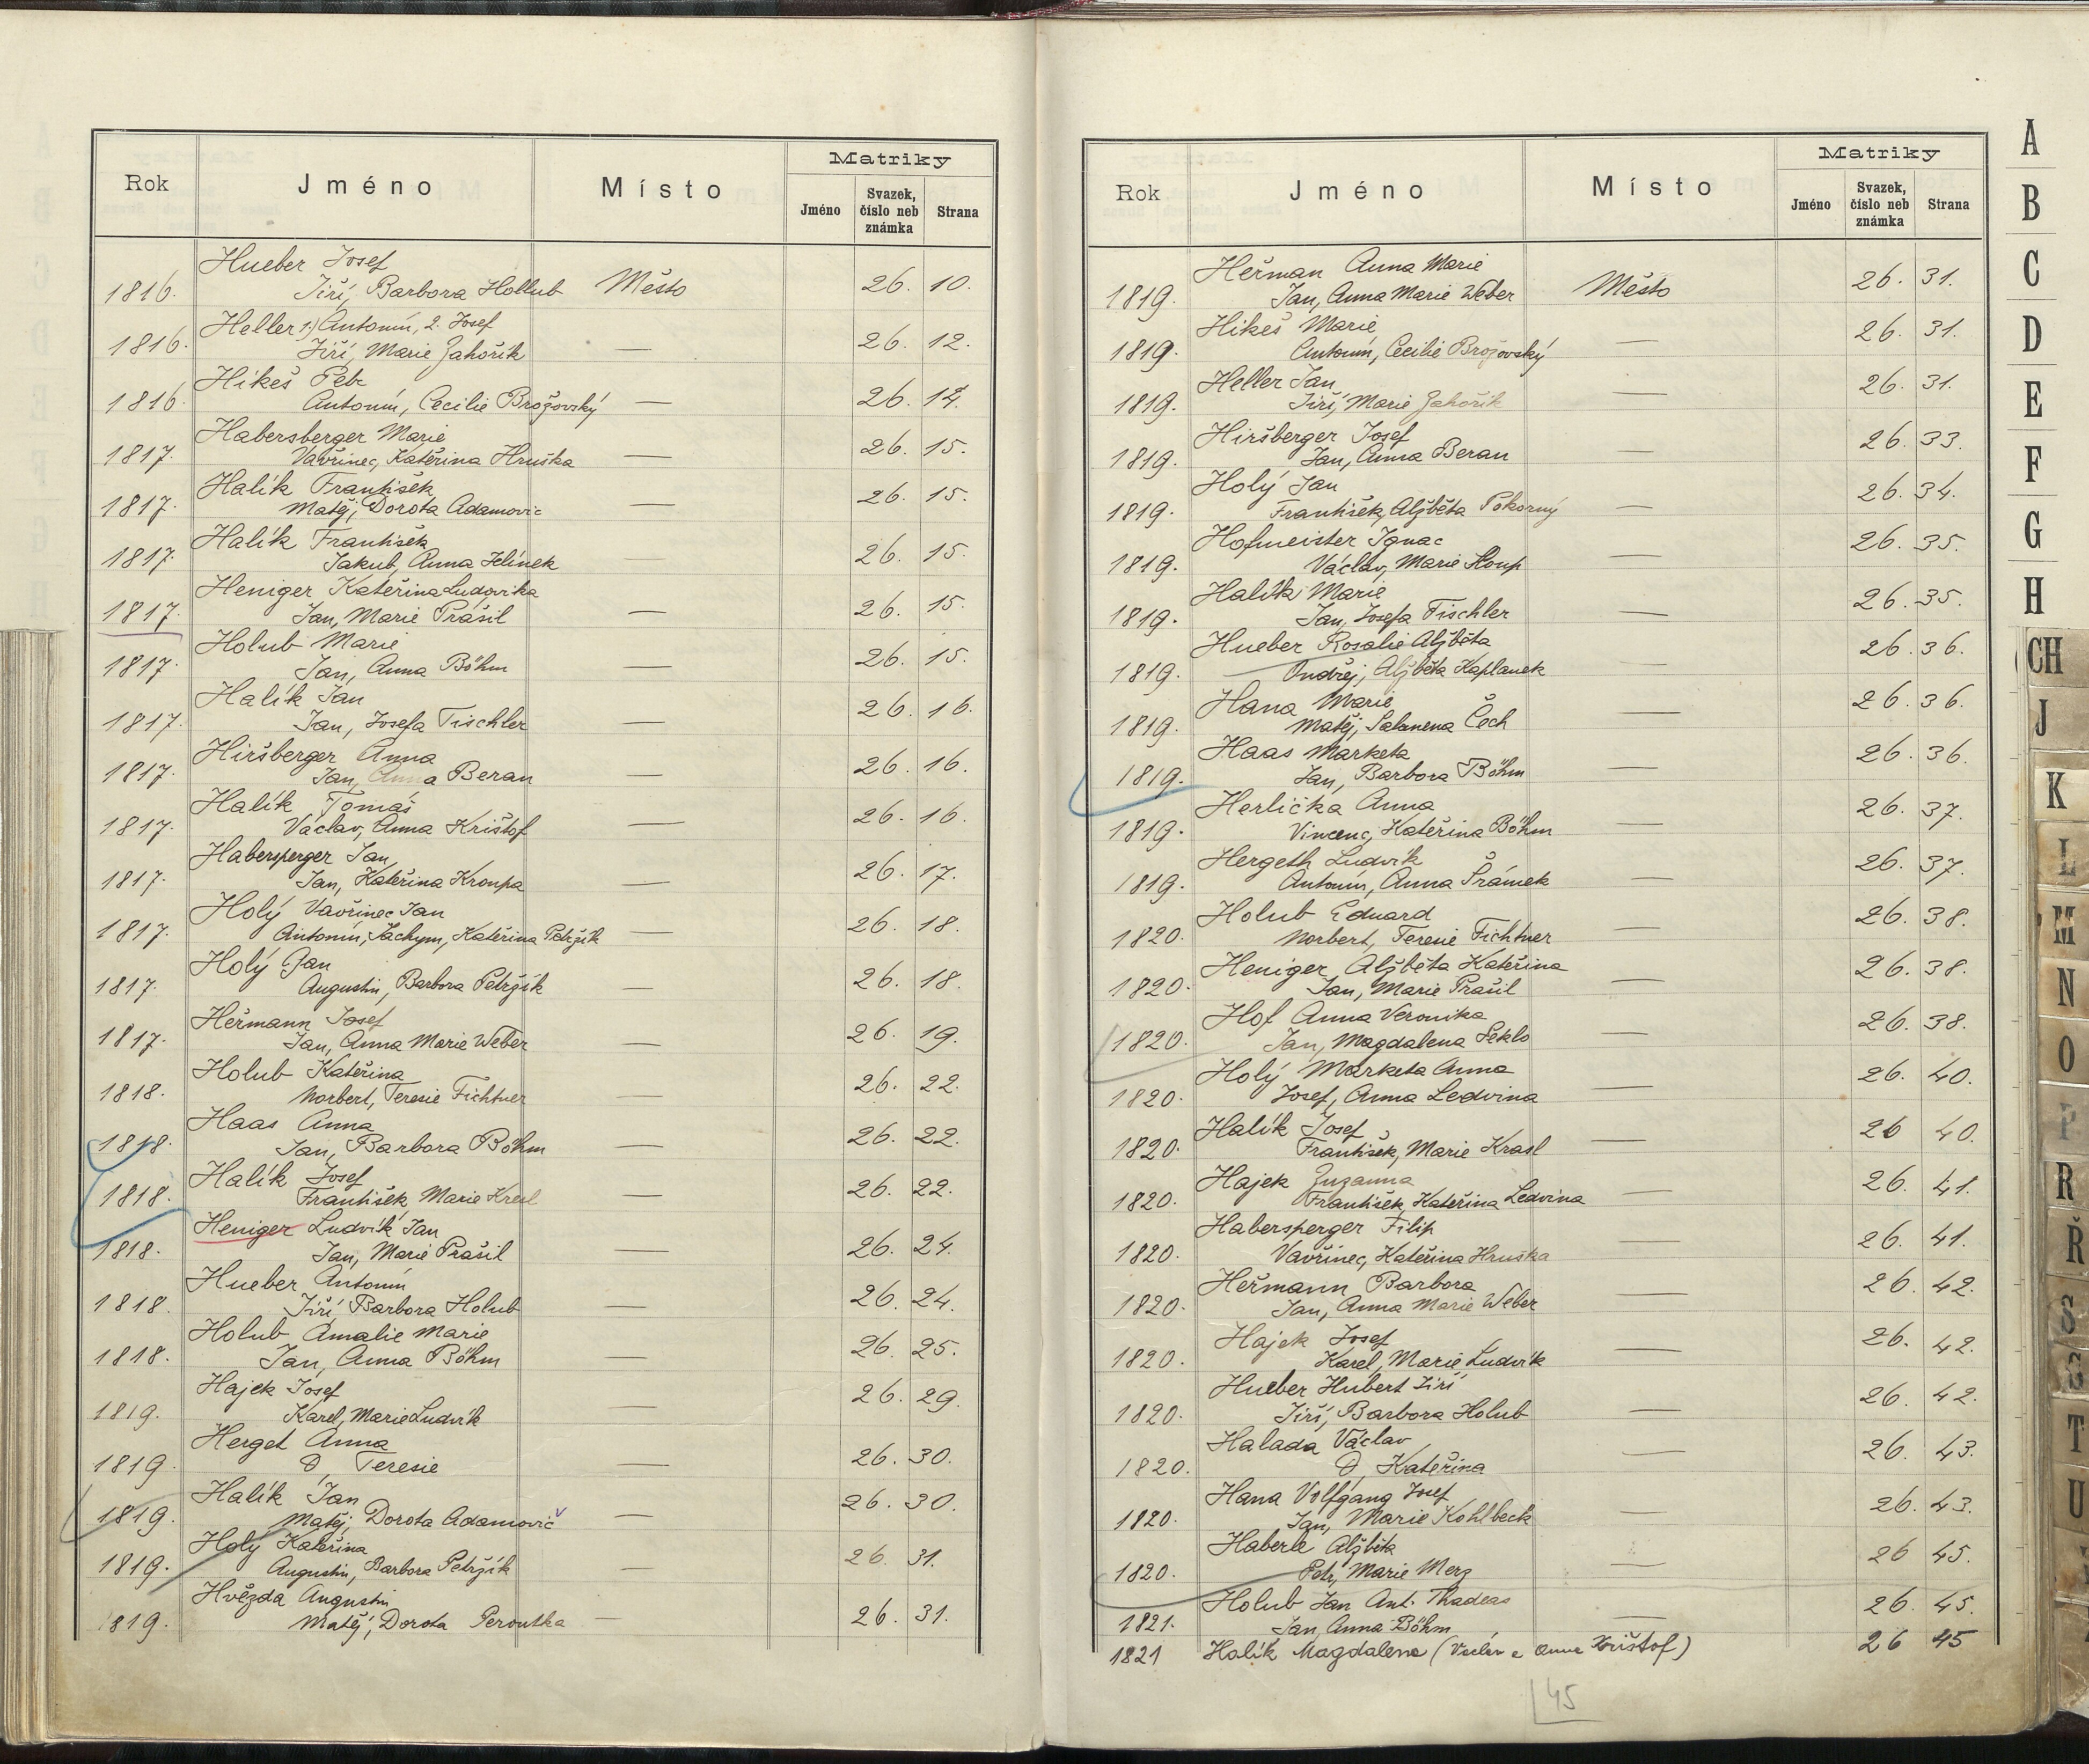 Rok Jméno Místo Matriky
Jméno Svazek, číslo neb známka Strana
Hueber Josef
1816. Jiří, Barbora Hollub Město 26. 10.
Heller 1.) Antonín, 2. Josef
1816. Jiří, Marie Zahořík — 26. 12.
Hikeš Petr
1816. Antonín, Cecilie Brožovský — 26. 14.
Habersberger Marie
1817. Vavřinec, Kateřina Hruška — 26. 15.
Halík František
1817. Matěj, Dorota Adamovic — 26. 15.
Halík František
1817. Jakub, Anna Jelínek — 26. 15.
Heniger Kateřina Ludovika
1817. Jan, Marie Prášil — 26. 15.
Holub Marie
1817. Jan, Anna Böhm — 26. 15.
Halík Jan
1817. Jan, Josefa Tischler — 26. 16.
Hiršberger Anna
1817. Jan, Anna Beran — 26. 16.
Halík Tomáš
1817. Václav, Anna Krištof — 26. 16.
Habersperger Jan
1817. Jan, Kateřina Kroupa — 26. 17.
Holý Vavřinec Jan
1817. Antonín, Jáchym, Kateřina Petržík — 26. 18.
Holý Jan
1817. Augustin, Barbora Petržík — 26. 18.
Heřmann Josef
1817. Jan, Anna Marie Weber — 26. 19.
Holub Kateřina
1818. Norbert, Teresie Fichtner — 26. 22.
Haas Anna
1818. Jan, Barbora Böhm — 26. 22.
Halík Josef
1818. František, Marie — 26. 22.
Heniger Ludvík Jan
1818. Jan, Marie Prašil — 26. 24.
Hueber Antonín
1818. Jiří, Barbora Holub — 26. 24.
Holub Amalie Marie
1818. Jan, Anna Böhm — 26. 25.
Hajek Josef
1819. Karel, Marie Ludvík 26. 29.
Herget Anna
1819. Teresie — 26. 30.
Halík Jan
1819. Matěj, Dorota Adamovič — 26. 30.
Holý Kateřina
1819. Augustin, Barbora Petržík — 26. 31.
Hvězda Augustin
1819. Matěj, Dorota Peroutka — 26. 31.
Rok Jméno Místo Matriky
Jméno Svazek, číslo neb známka Strana
Heřman Anna Marie
1819. Jan, Anna Marie Weber Město 26. 31.
Hikeš Marie
1819. Antonín, Cecilie Brožovský — 26. 31.
Heller Jan
1819. Jiří, Marie Zahořík — 26. 31.
Hiršberger Josef
1819. Jan, Anna Beran — 26. 33.
Holý Jan
1819. František, Alžběta Pokorný — 26. 34.
Hofmeister Ignac
1819. Václav, Marie — 26. 35.
Halík Marie
1819. Jan, Josefa Tischler — 26. 35.
Hueber Rosalie Alžběta
1819. Ondřej, Alžběta Kaplanek — 26. 36.
Hana Marie
1819. Matěj, Čech — 26. 36.
Haas Marketa
1819. Jan, Barbora Böhm — 26. 36.
Herlička Anna
1819. Vincenc, Kateřina Böhm — 26. 37.
Hergeth Ludvík
1819. Antonín, Anna Šrámek — 26. 37.
Holub Eduard
1820. Norbert, Teresie Fichtner — 26. 38.
Heniger Alžběta Kateřina
1820. Jan, Marie Prašil — 26. 38.
Hof Anna Veronika
1820. Jan, Magdalena Seklo — 26. 38.
Holý Marketa Anna
1820. Josef, Anna Ledvina — 26. 40.
Halík Josef
1820. František, Marie Krasl — 26 40.
Hajek Zuzanna
1820. František, Kateřina Ledvina — 26. 41.
Habersperger Filip
1820. Vavřinec, Kateřina Hruška — 26. 41.
Heřmann Barbora
1820. Jan, Anna Marie Weber — 26. 42.
Hajek Josef
1820. Karel, Marie Ludvík — 26. 42.
Hueber Hubert Jiří
1820. Jiří, Barbora Holub — 26. 42.
Halada Václav
1820. Kateřina — 26. 43.
Hana Volfgang Josef
1820. Jan, Marie Kohlbeck — 26. 43.
Haberle Alžběta
1820. Petr, Marie Merz — 26 45.
Holub Jan Ant. Thadeas
1821. Jan, Anna Böhm — 26. 45.
1821 Halík Magdalena (Václav a Anna Krištof) 26 45
45
A
B
C
D
E
F
G
H
CH
J
K
L
M
N
O
P
R
Ř
S
Š
T
U